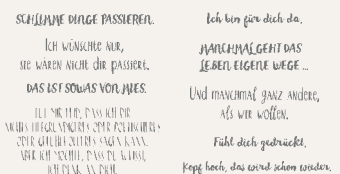 SCHLIMME DINGE PASSIEREN.
Ich wünschte nur,
sie wären nicht dir passiert.
DAS IST SOWAS VON MIES.
TUT MIR LEID, DASS ICH DIR
NICHTS
ODER
SAGEN KANN.
ABER ICH MÖCHTE, DASS DU WEISST,
ICH DENK AN DICH.
Ich bin für dich da.
MANCHMAL GEHT DAS
LEBEN EIGENE WEGE ...
Und manchmal ganz andere,
als wir wollen.
Fühl dich gedrückt.
Kopf hoch, das wird schon wieder.